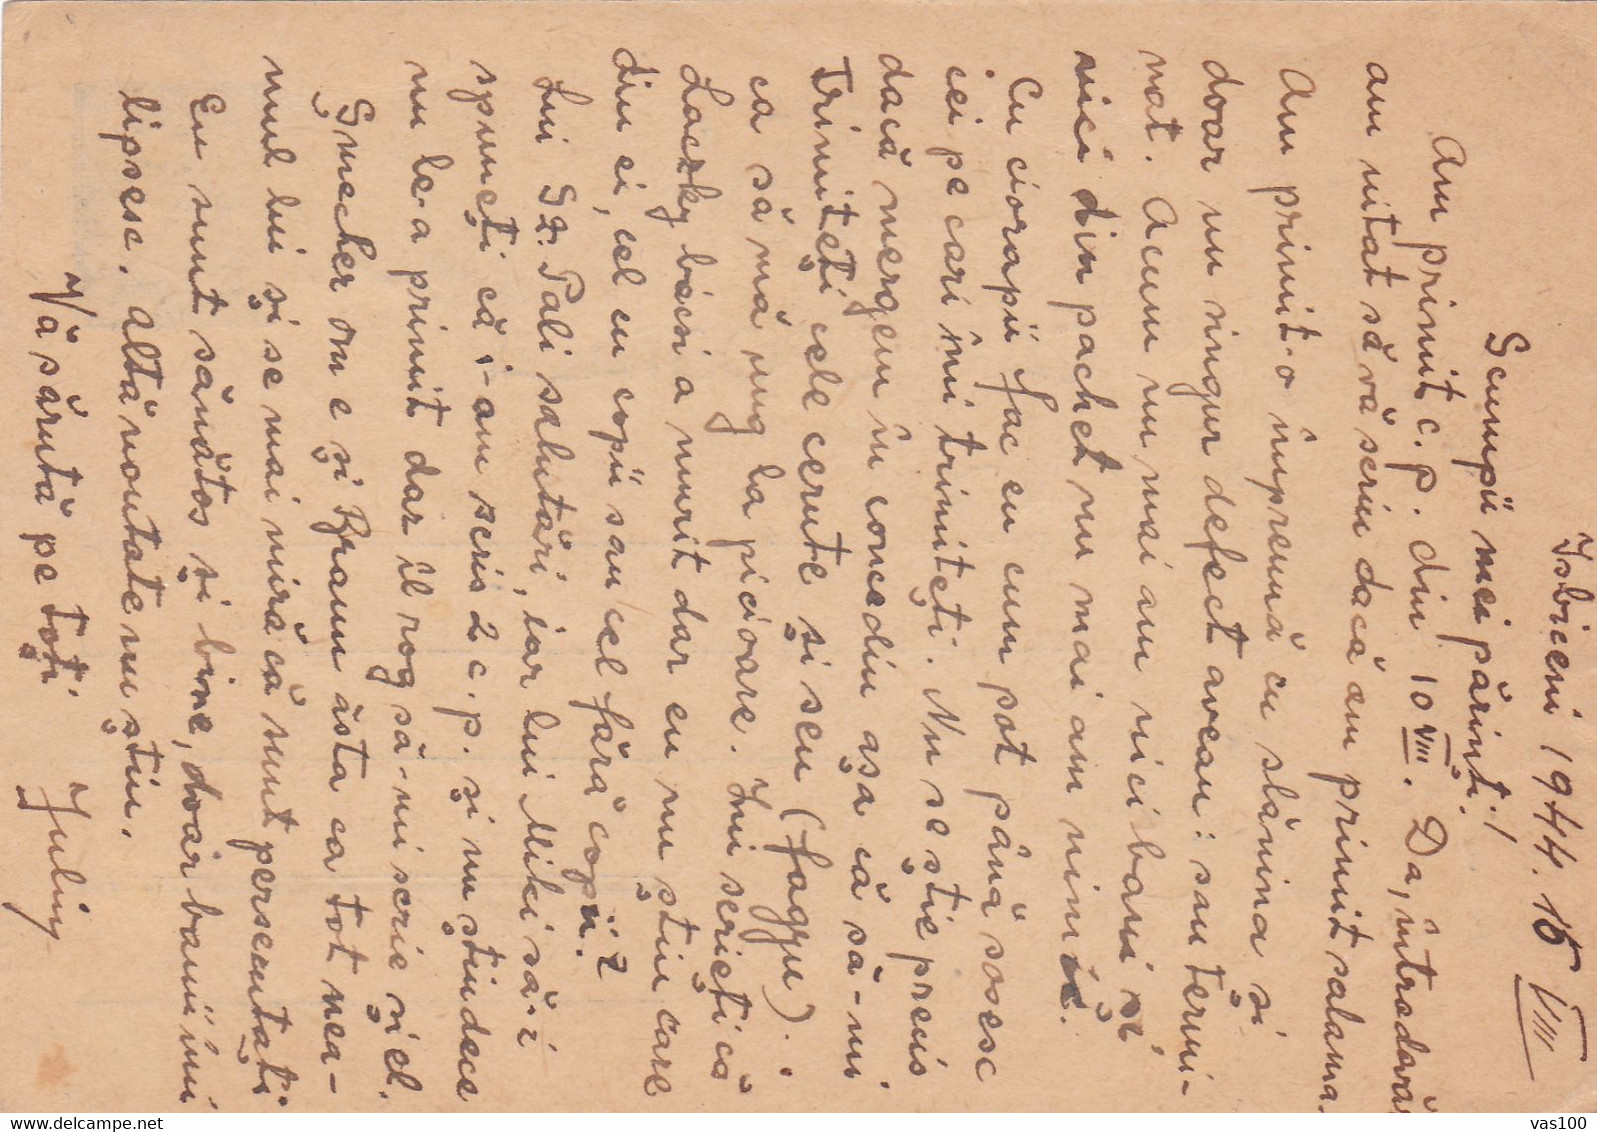 Isbiceni 1944. 15 VIII
Scumpii mei părinți!
Am primit c. p. din 10 VIII. Da, întradevăr
am uitat să vă scriu dacă am primit salama.
Am primit-o împreună cu slănina și
doar un singur defect aveau: sau termi-
nat. Acum nu mai am nici bani și
nici din pachet nu mai am nimic.
Cu ciorapii fac eu cum pot până sosesc
cei pe cari îmi trimiteți. Nu se știe precis
dacă mergem în concediu așa că să-mi
trimiteți cele cerute și seu (faggu).
ca să mă ung la picioare. Imi scrieți că
Laczky bácsi a murit dar eu nu știu care
din ei, cel cu copii sau cel fără copii?
Lui Sz. Pali salutări, iar lui Miki să-i
spuneți că i-am scris 2 c. p. și nu știu dece
nu le-a primit dar îl rog să-mi scrie și el.
Șmecher om e și Braun ăsta ca tot nea-
mul lui și se mai miră că sunt persecutați
Eu sunt sănătos și bine, doar banii îmi
lipsesc. altă noutate nu știu.
Vă sărută pe toți
Juliu
vas100